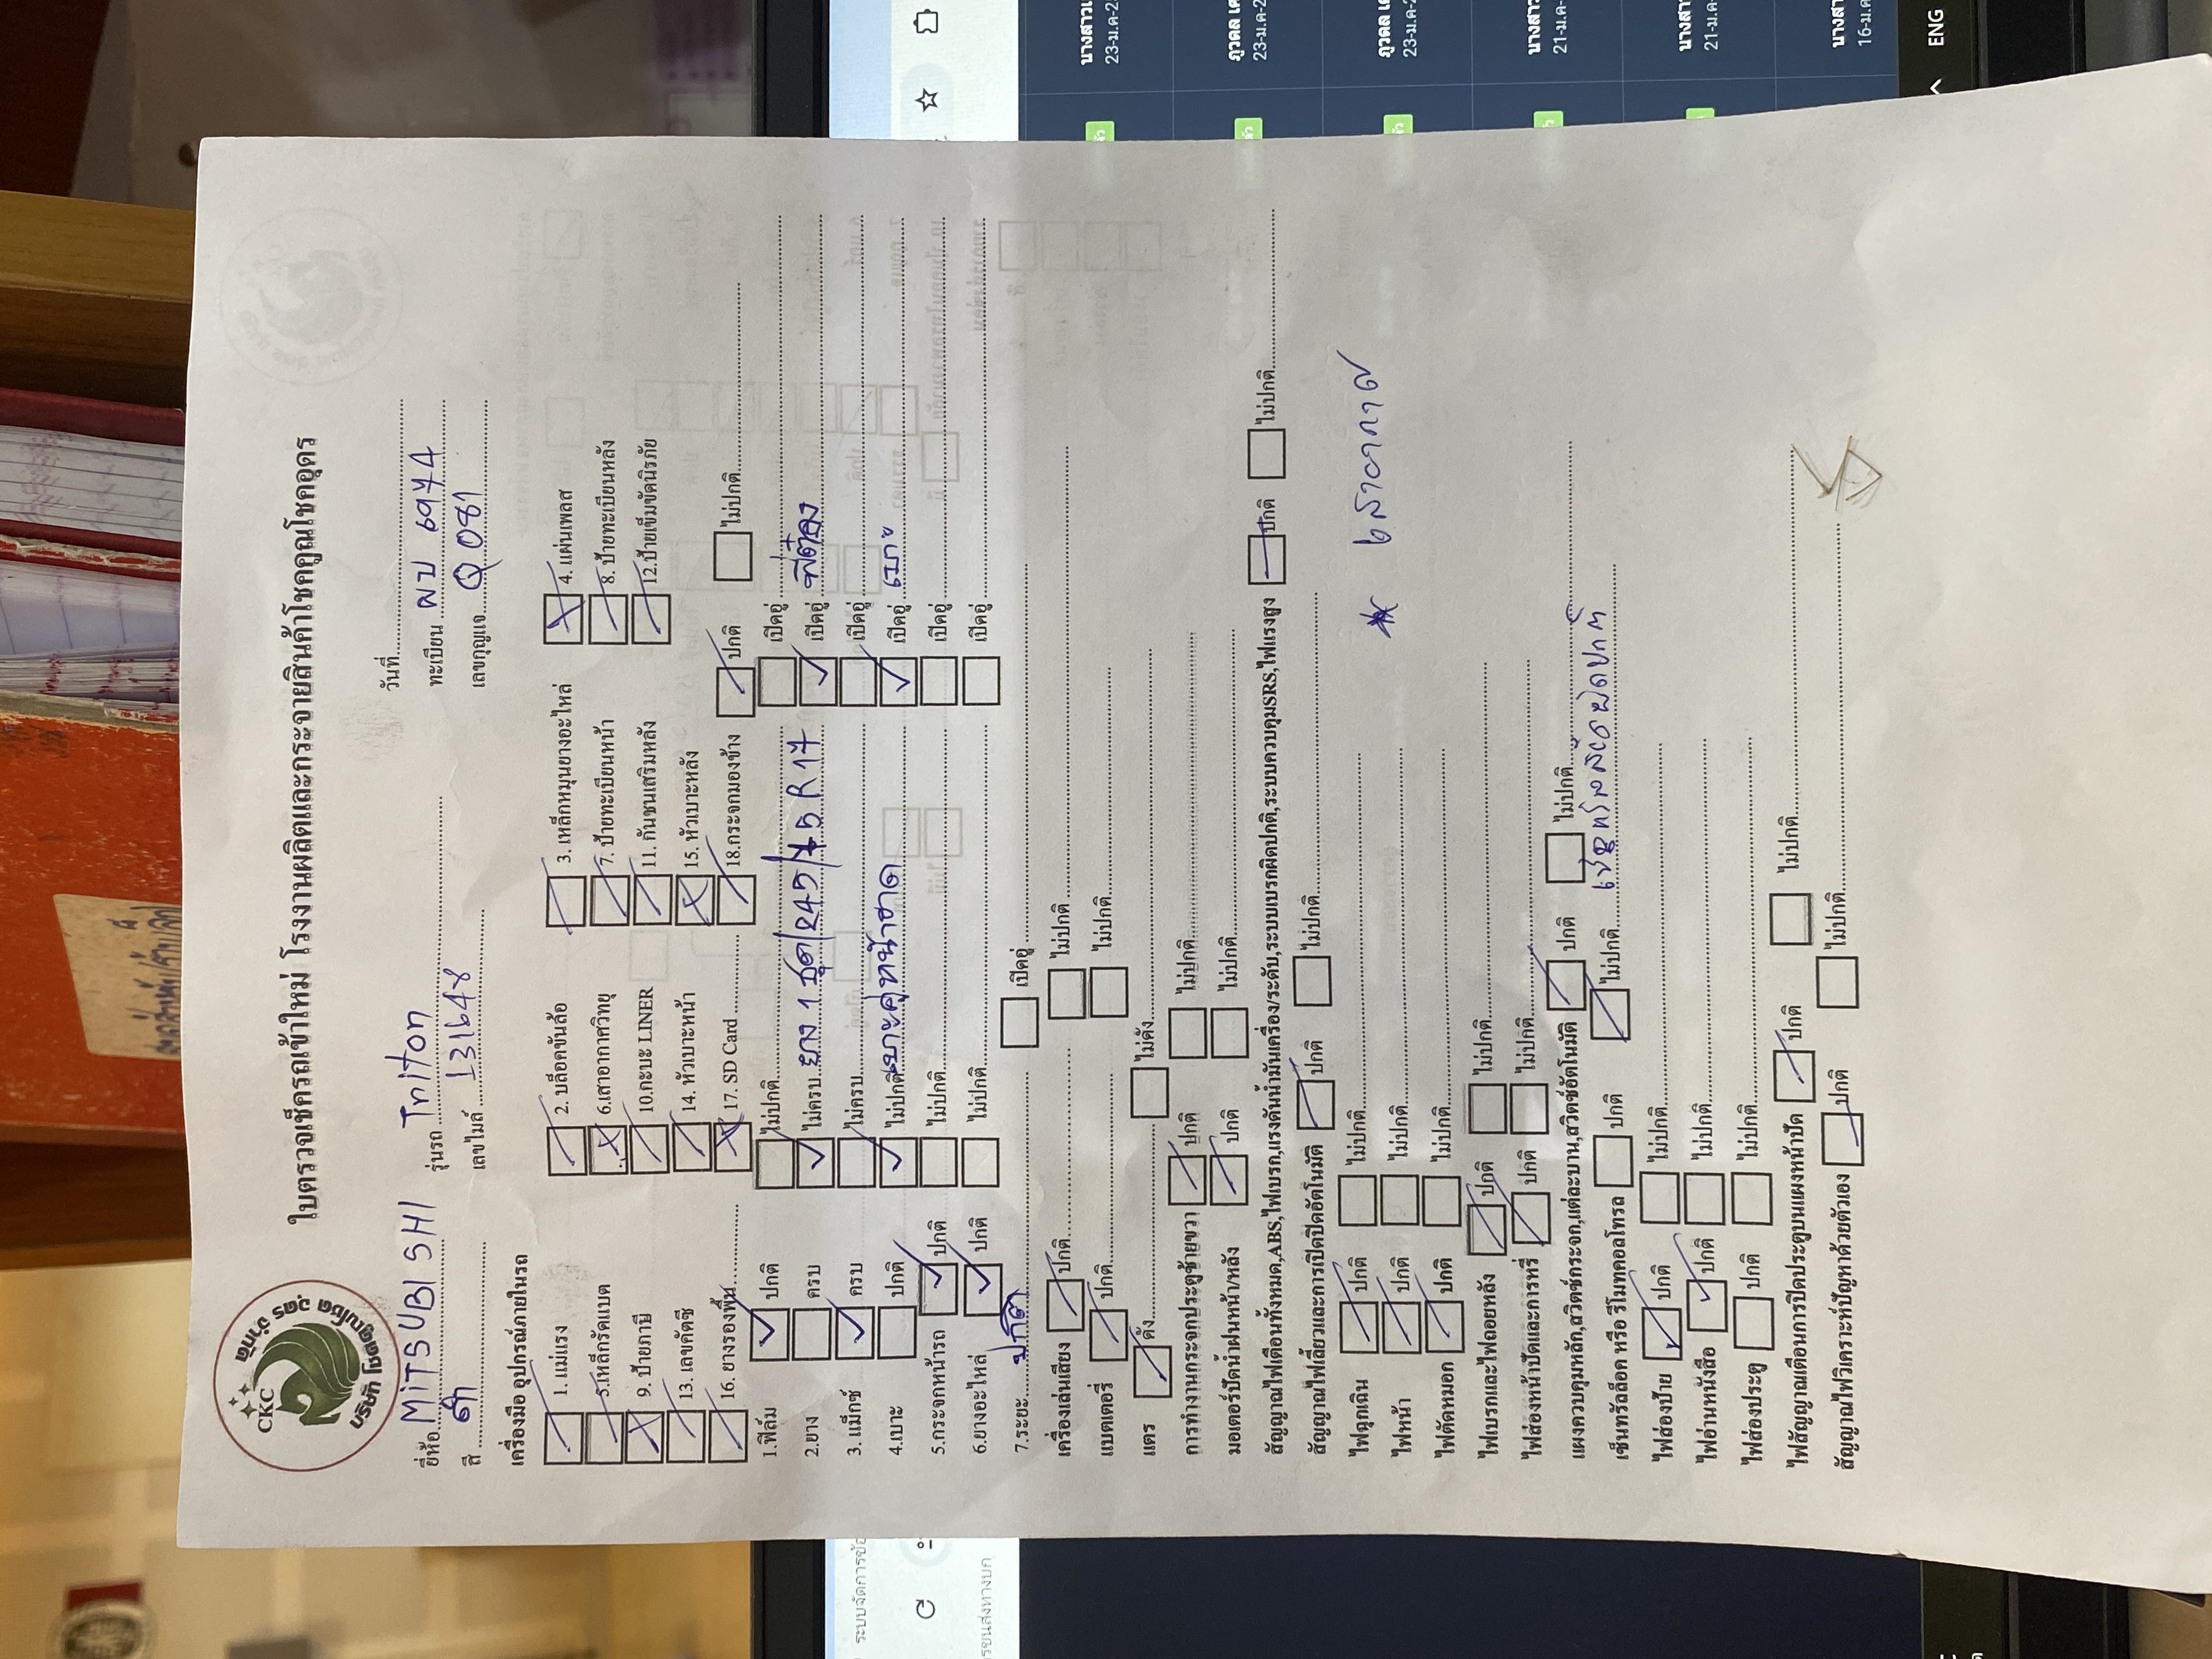 CKC
บริษัท คูณโชค อุดร จำกัด
ใบตรวจเช็ครถเข้าใหม่ โรงงานผลิตและกระจายสินค้าโชคคูณโชคอุดร
วันที่
ยี่ห้อ MITSUBISHI รุ่นรถ Triton ทะเบียน ผป 6974
สี ดำ เลขไมล์ 131648 เลขกุญแจ Q 081
เครื่องมือ อุปกรณ์ภายในรถ
1. แม่แรง 2. บล็อคขันล้อ 3. เหล็กหมุนยางอะไหล่ 4. แผ่นเพลส
5.เหล็กรัดแบต 6.เสาอากาศวิทยุ 7. ป้ายทะเบียนหน้า 8. ป้ายทะเบียนหลัง
9. ป้ายภาษี 10.กะบะ LINER 11. กันชนเสริมหลัง 12.ป้ายเข็มขัดนิรภัย
13. เลขคัตซี 14. หัวเบาะหน้า 15. หัวเบาะหลัง
16. ยางรองพื้น 17. SD Card 18.กระจกมองข้าง ปกติ ไม่ปกติ
1.ฟิล์ม ปกติ ไม่ปกติ เปิดอู่
2.ยาง ครบ ไม่ครบ ยาง 1 ชุด/245/75 R 17 เปิดอู่
3. แม็กซ์ ครบ ไม่ครบ เปิดอู่
4.เบาะ ปกติ ไม่ปกติ เบาะคู่หน้าขาด เปิดอู่ เบาะ
5. กระจกหน้ารถ ปกติ ไม่ปกติ เปิดอู่
6.ยางอะไหล่ ปกติ ไม่ปกติ เปิดอู่
7.ระยะ ปกติ เปิดอู่
เครื่องเล่นเสียง ปกติ ไม่ปกติ
แบตเตอรี่ ปกติ ไม่ปกติ
แตร ดัง ไม่ดัง
การทำงานกระจกประตูซ้ายขวา ปกติ ไม่ปกติ
มอเตอร์ปัดน้ำฝนหน้า/หลัง ปกติ ไม่ปกติ
สัญญาณไฟเตือนทั้งหมด,ABS,ไฟเบรก,แรงดันน้ำมันเครื่อง/ระดับ,ระบบเบรกผิดปกติ,ระบบควบคุมSRS,ไฟแรงสูง ปกติ ไม่ปกติ
สัญญาณไฟเลี้ยวและการเปิดปิดอัตโนมัติ ปกติ ไม่ปกติ
ไฟฉุกเฉิน ปกติ ไม่ปกติ
ไฟหน้า ปกติ ไม่ปกติ
ไฟตัดหมอก ปกติ ไม่ปกติ
ไฟเบรกและไฟถอยหลัง ปกติ ไม่ปกติ
ไฟส่องหน้าปัดและการหรี่ ปกติ ไม่ปกติ
แผงควบคุมหลัก,สวิตช์กระจก,แต่ละบาน,สวิตช์อัตโนมัติ ปกติ ไม่ปกติ
เซ็นทรัลล็อค หรือ รีโมทคอลโทรล ปกติ ไม่ปกติ
ไฟส่องป้าย ปกติ ไม่ปกติ
ไฟอ่านหนังสือ ปกติ ไม่ปกติ
ไฟส่องประตู ปกติ ไม่ปกติ
ไฟสัญญาณเตือนการปิดประตูบนแผงหน้าปัด ปกติ ไม่ปกติ
สัญญาณไฟวิเคราะห์ปัญหาด้วยตัวเอง ปกติ ไม่ปกติ
23-ม.ค-2
23-ม.ค-2
23-ม.ค-2
21-ม.ค-
21-ม.ค-
16-ม.ค
ENG